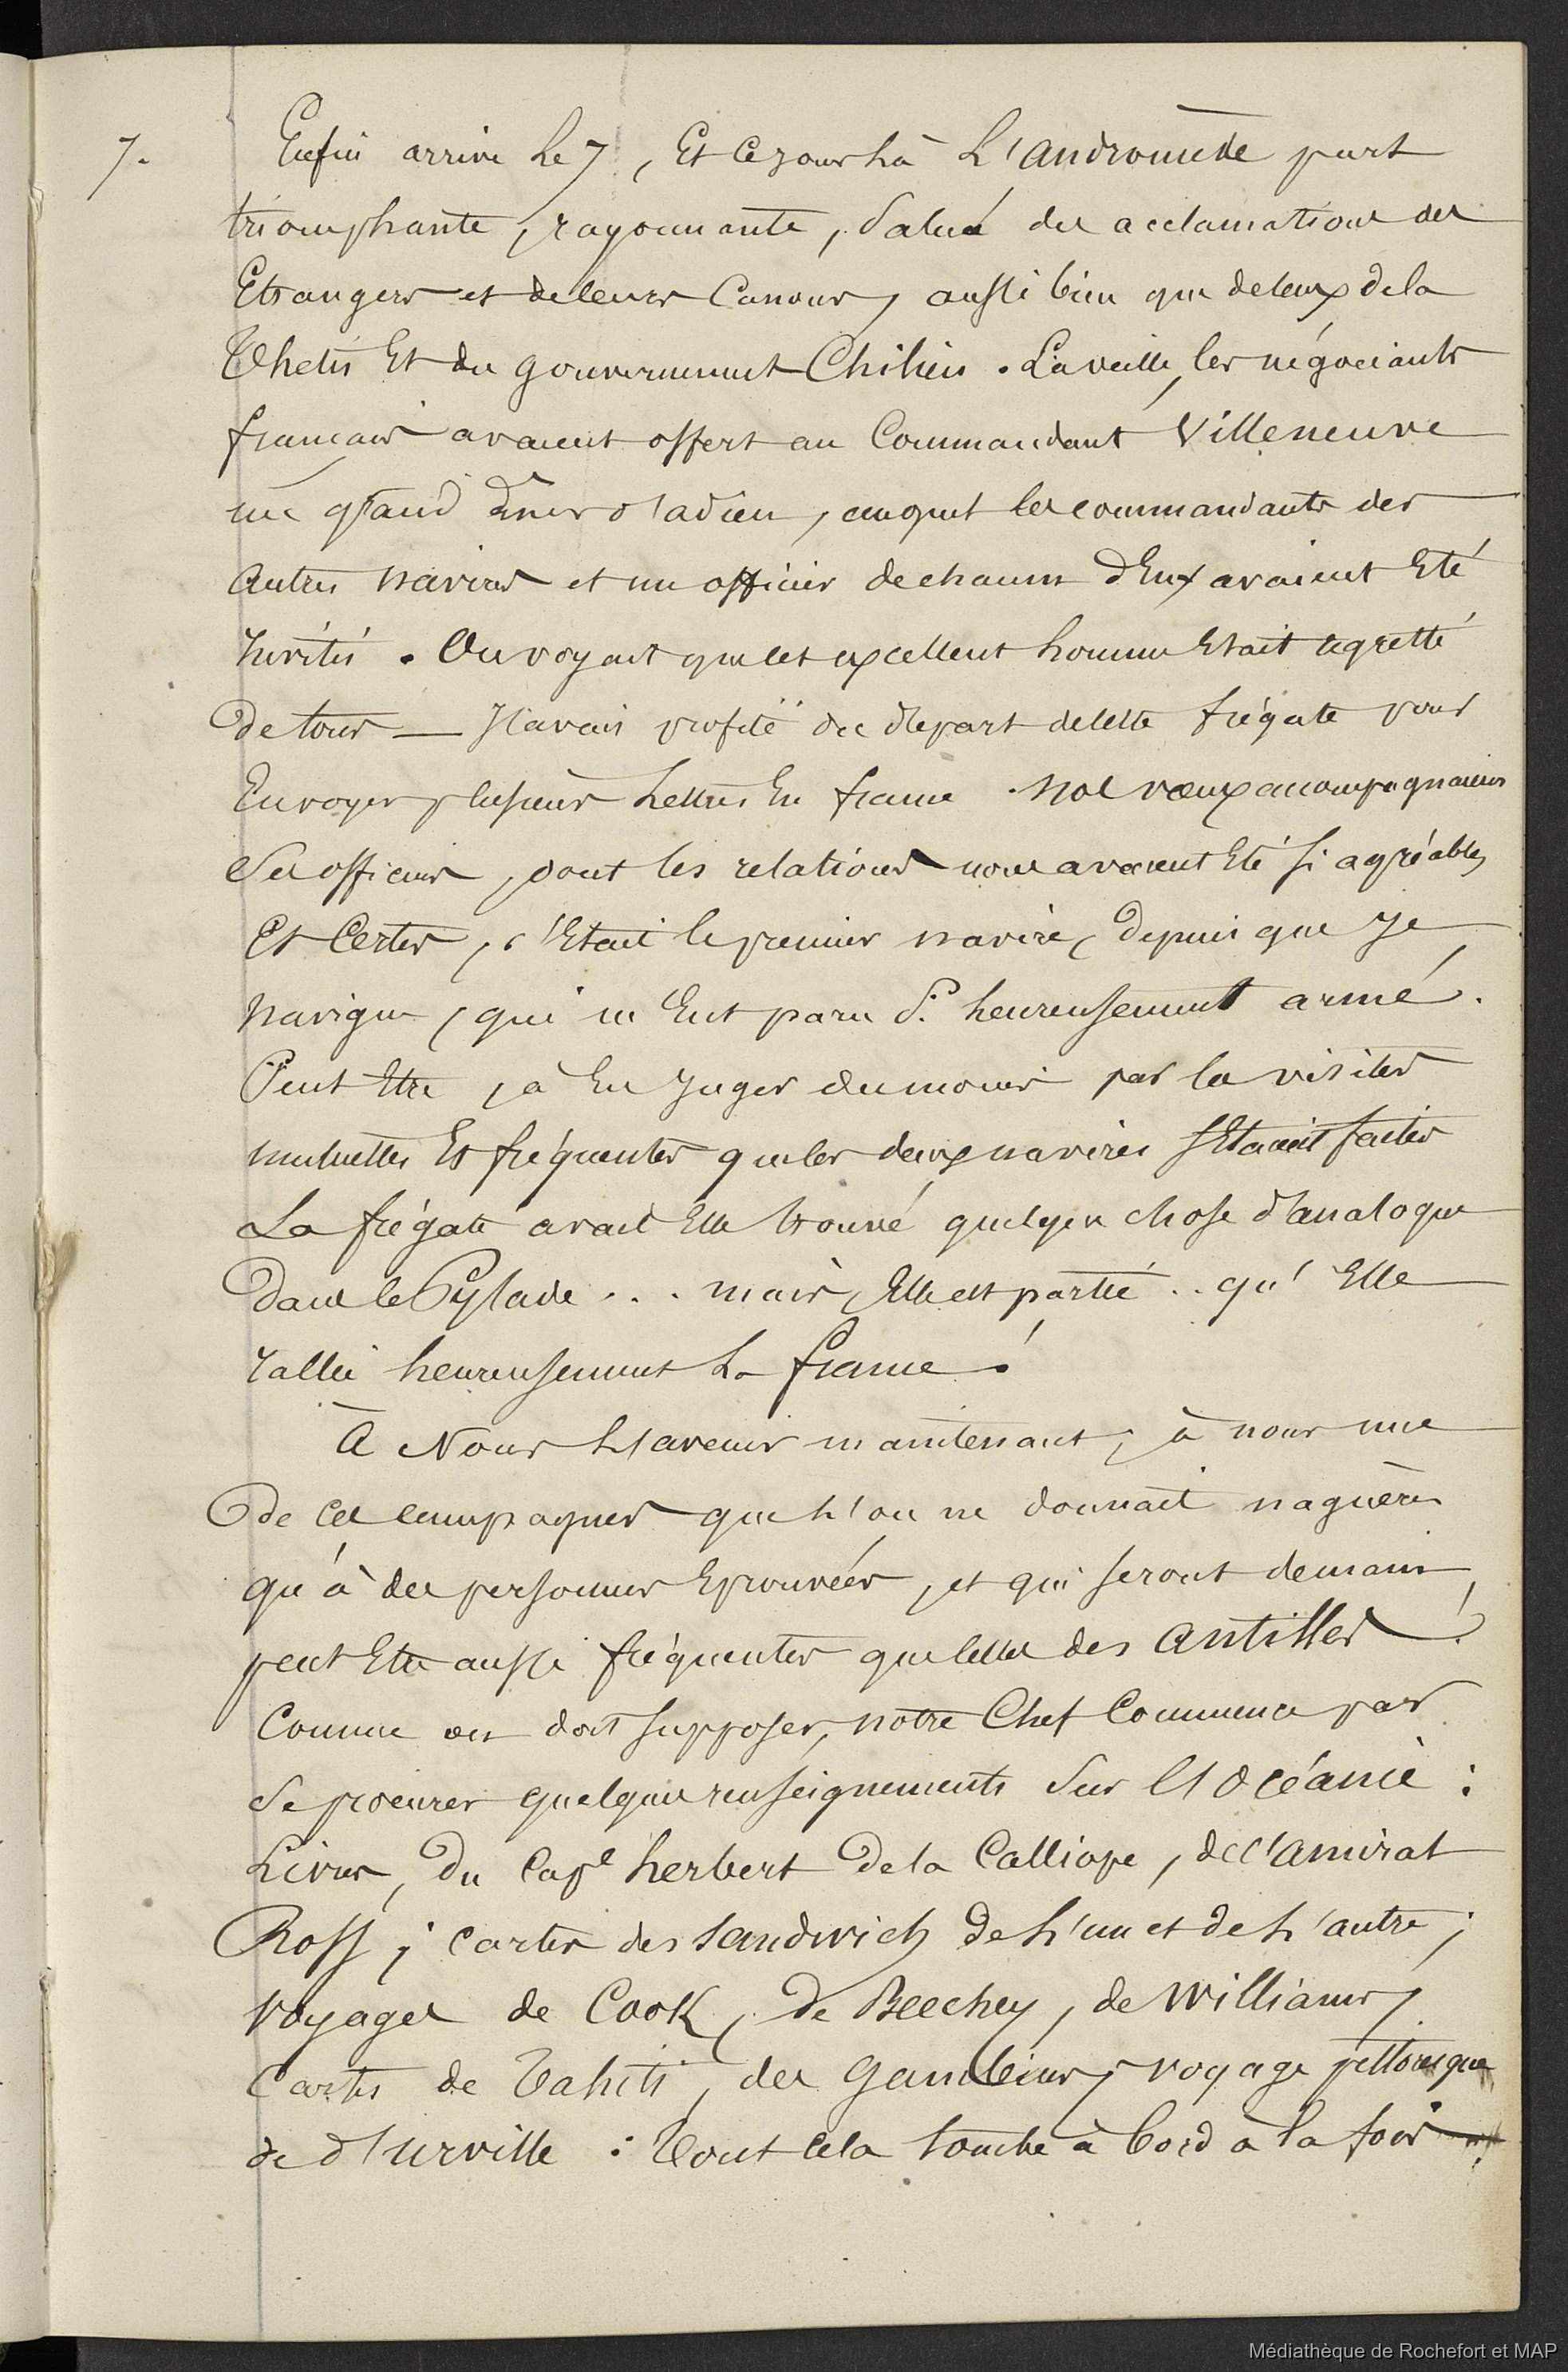 7. Enfin arrive Le 7, Et ce jour là L'andromède part
triomphante, rayonnante, Salué des acclamations des
Etrangers et de leurs Canons, aussi bien que de ceux de la
Thétis Et du gouvernement Chilien. La veille, les négociants
français avaient offert au Commandant Villeneuve
un grand Diner d'adieu, auquel les commandants des
autres navires et un officier de chacun d'Eux avaient Eté
Invités. On voyait que cet excellent homme Etait regretté
De tous — J'avais profité du départ de cette frégate pour
Envoyer plusieurs Lettres En france. Nos vœux accompagnaient
Ses officiers, dont les relations nous avaient Eté si agréables
Et Certes, c'Etait le premier navire, Depuis que Je
navigue, qui m'Eut paru Si heureusement armé.
Peut Etre, à En Juger du moins par les visites
mutuelles Et fréquentes que les deux navires s'Etaient faites
La frégate avait Elle trouvé quelque chose d'analogue
Dans le Pylade... mais, Elle est partie.. qu'Elle
rallie heureusement La france!
A Nous L'avenir maintenant, à nous une
De ces campagnes que L'on ne donnait naguères
qu'à des personnes Eprouvées, et qui seront demain,
peut Etre aussi fréquentes que celles des antilles!
Comme on doit supposer, notre Chef Commence par
Se procurer quelques renseignements Sur l'Océanie:
Livres, Du Cape herbert De la Calliope, de l'amiral
Ross; cartes des Sandwich De L'un et de L'autre;
voyages de Cook, De Beechey, de Williams,
Cartes de Tahiti, des Gambiers, voyage pittoresque
de d'Urville: Tout Cela tombe à bord à la fois
Médiathèque de Rochefort et MAP